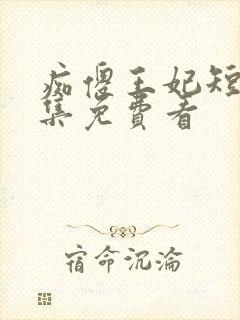 痴傻王妃短
集免費看
宿命沉淪